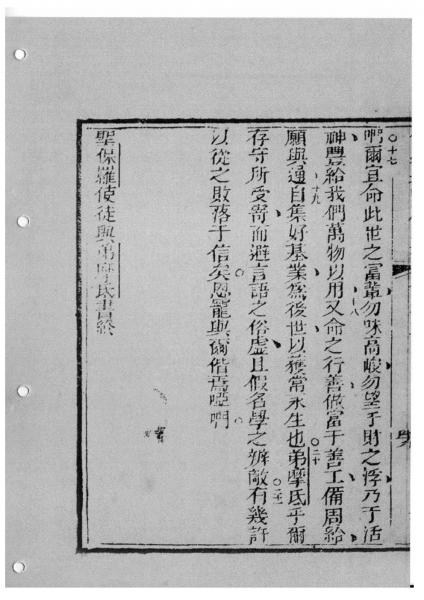 ○十七
呵爾宜命此世之富輩勿味高峻勿望于財之浮乃于活
十八
神豐給我們萬物以用又命之行善僌富于善工備周給
十九
願與通自集好基業為後世以獲常永生也弟摩氐乎爾
○二十
存守所受寄而避言語之俗虛且假名學之辨敵有幾許
○二十一
以從之敗落于信矣恩寵與爾偕焉啞呵
聖保羅使徒與弟摩氐書終